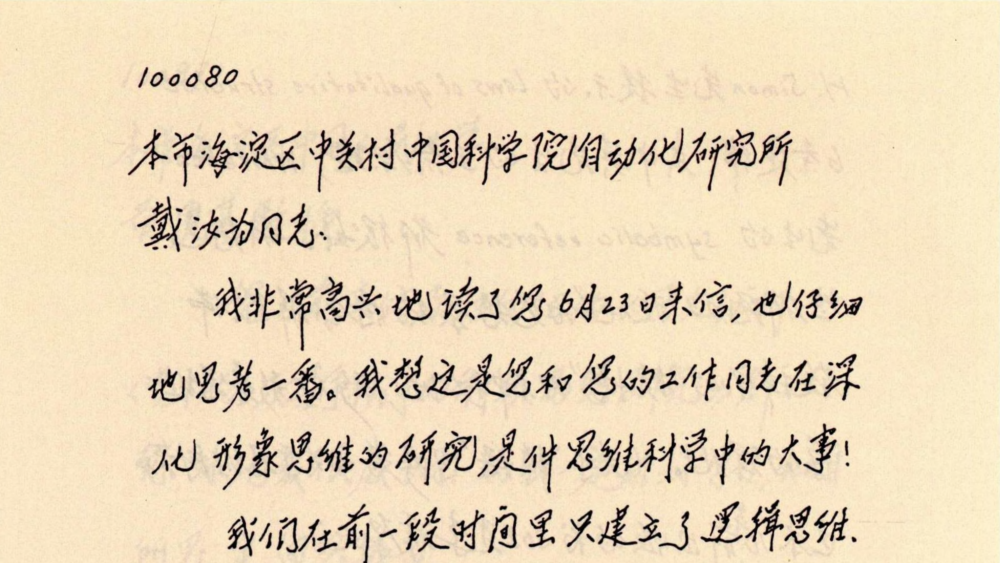 100080
本市海淀区中关村中国科学院自动化研究所
戴汝为同志:
我非常高兴地读了您6月23日来信,也仔细
地思考一番。我想这是您和您的工作同志在深
化形象思维的研究,是件思维科学中的大事!
我们在前一段时间里只建立了逻辑思维.